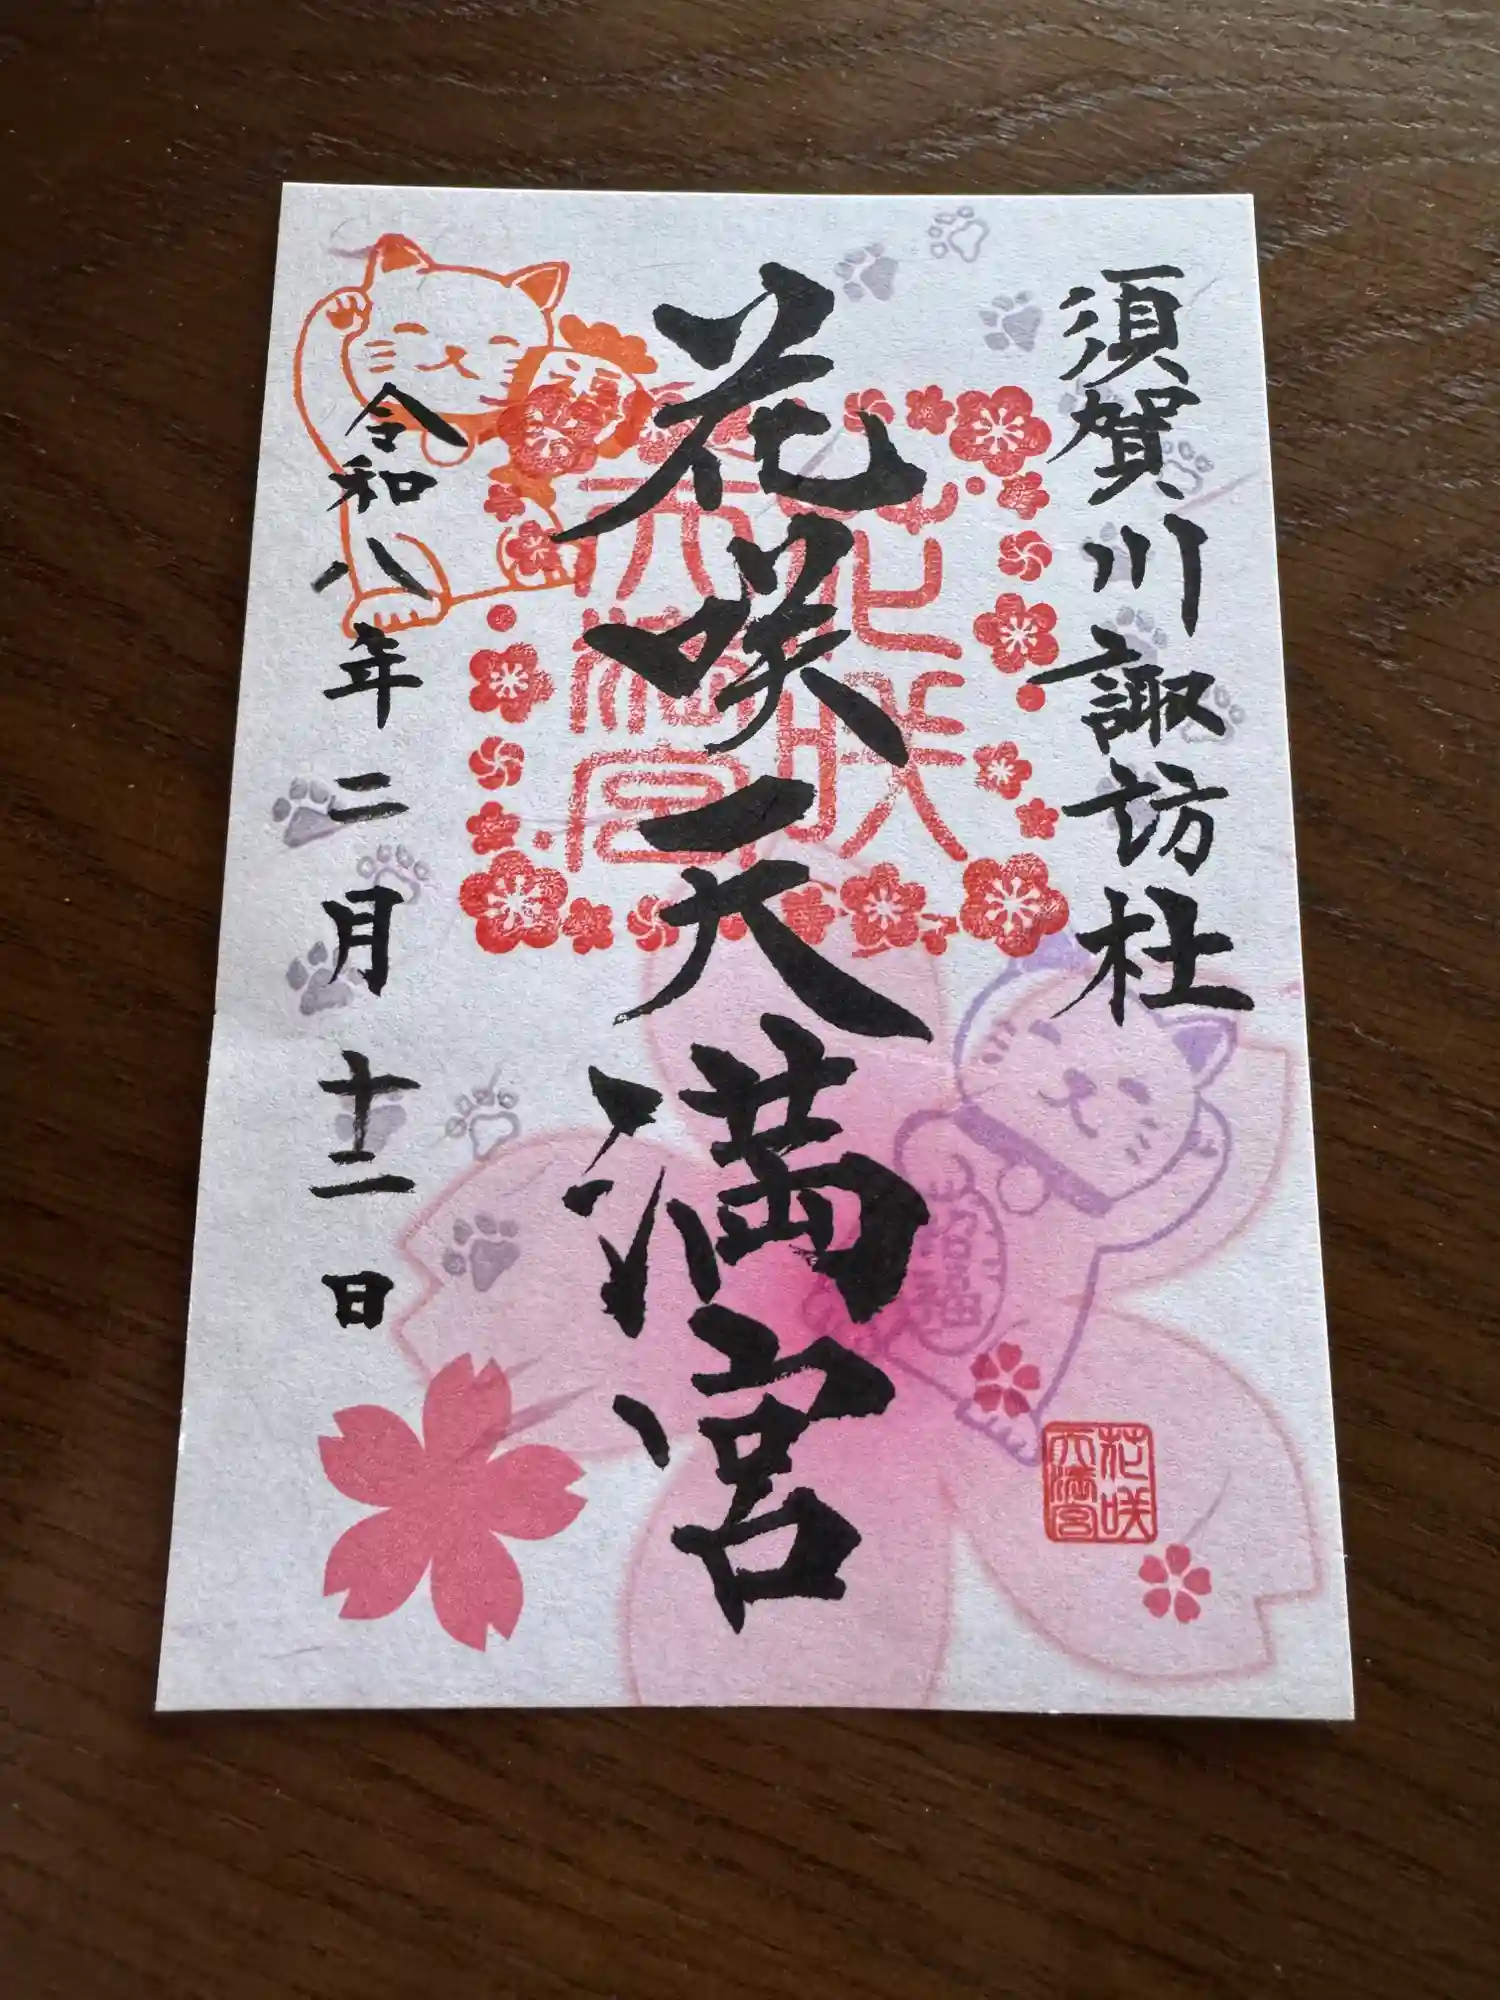 須賀川諏訪社
花咲天満宮
令和八年二月十二日
花咲
天満宮
花咲
天満宮
福
招福